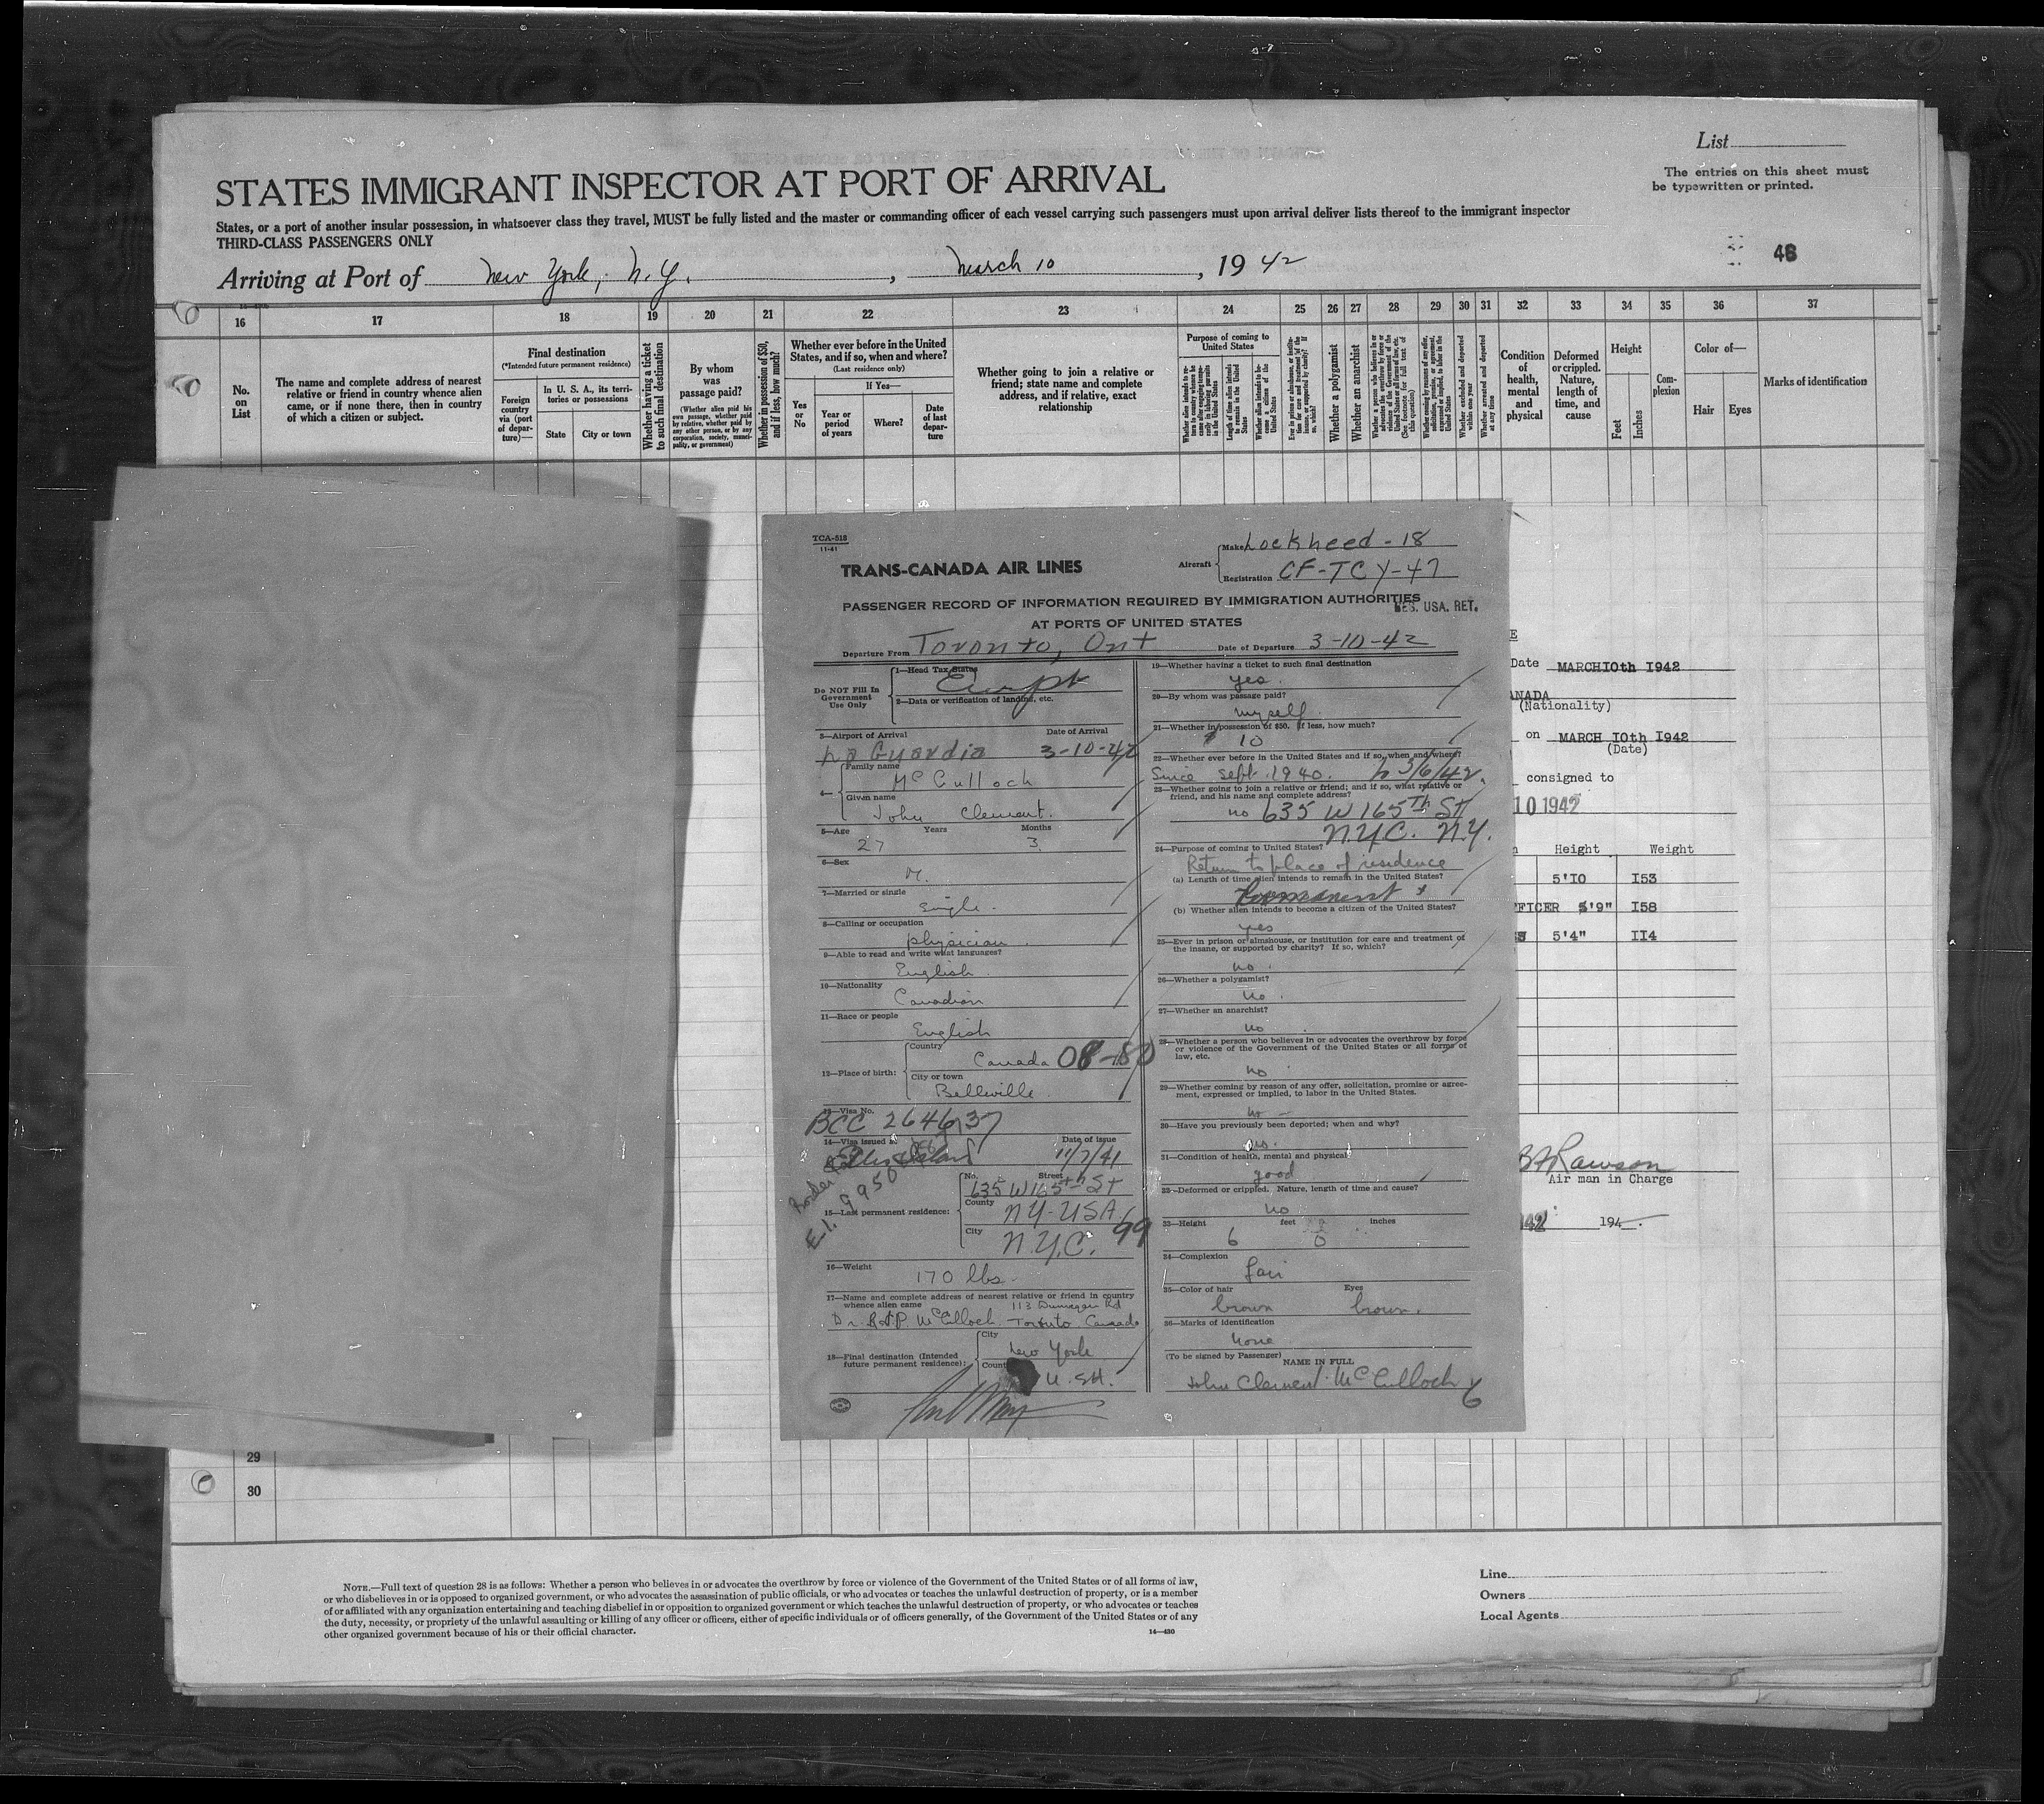 List
The entries on this sheet must
be typewritten or printed.
STATES IMMIGRANT INSPECTOR AT PORT OF ARRIVAL
States, or a port of another insular possession, in whatsoever class they travel, MUST be fully listed and the master or commanding officer of each vessel carrying such passengers must upon arrival deliver lists thereof to the immigrant inspector
THIRD-CLASS PASSENGERS ONLY
48
Arriving at Port of New York, N.Y., March 10, 1942
16 17 18 19 20 21 22 23 24 25 26 27 28 29 30 31 32 33 34 35 36 37
No.
on
List
The name and complete address of nearest
relative or friend in country whence alien
came, or if none there, then in country
of which a citizen or subject.
Final destination
(*Intended future permanent residence)
Foreign
country
via (port
of depar-
ture)—
In U. S. A., its terri-
tories or possessions
State City or town
Whether having a ticket
to such final destination
By whom
was
passage paid?
(Whether alien paid his
own passage, whether paid
by relative, whether paid by
any other person, or by any
corporation, society, munici-
pality, or government)
Whether in possession of $50,
and if less, how much?
Whether ever before in the United
States, and if so, when and where?
(Last residence only)
Yes
or
No
If Yes—
Year or
period
of years
Where?
Date
of last
depar-
ture
Whether going to join a relative or
friend; state name and complete
address, and if relative, exact
relationship
Purpose of coming to
United States
Whether a polygamist
Whether an anarchist
Condition
of
health,
mental and
physical
Deformed
or crippled.
Nature,
length of
time, and
cause
Height
Feet Inches
Com-
plexion
Color of—
Hair Eyes
Marks of identification
TCA-518
11-41
TRANS-CANADA AIR LINES
Aircraft
Make Lockheed-18
Registration CF-TCY-47
PASSENGER RECORD OF INFORMATION REQUIRED BY IMMIGRATION AUTHORITIES
AT PORTS OF UNITED STATES
RES. USA. RET.
Departure From Toronto, Ont Date of Departure 3-10-42
Do NOT Fill In
Government
Use Only
1—Head Tax Status
Exempt
2—Data or verification of landing, etc.
3—Airport of Arrival Date of Arrival
La Guardia 3-10-42
4—
Family name
McCulloch
Given name
John Clement.
5—Age Years Months
27 3
6—Sex
M.
7—Married or single
single.
8—Calling or occupation
physician.
9—Able to read and write what languages?
English.
10—Nationality
Canadian
11—Race or people
English
12—Place of birth:
Country
Canada 08-180
City or town
Belleville.
13—Visa No.
BCC 264637
14—Visa issued at Date of issue
11/7/41
Border
E.I. 9950
15—Last permanent residence:
No. Street
635 W 165th St
County
NY-USA
City
N.Y.C. 99
16—Weight
170 lbs.
17—Name and complete address of nearest relative or friend in country
whence alien came 113 Dunvegan Rd
Dr. R.J.P. McCulloch. Toronto. Canada
18—Final destination (Intended
future permanent residence):
City
New York
Country
U.S.A.
19—Whether having a ticket to such final destination
yes.
20—By whom was passage paid?
myself.
21—Whether in possession of $50, if less, how much?
$ 10
22—Whether ever before in the United States and if so, when and where?
Since Sept. 1940. to 3/6/42.
23—Whether going to join a relative or friend; and if so, what relative or
friend, and his name and complete address?
no 635 W 165TH ST
N.Y.C. N.Y.
24—Purpose of coming to United States?
Return to place of residence
(a) Length of time alien intends to remain in the United States?
Permanent
(b) Whether alien intends to become a citizen of the United States?
yes
25—Ever in prison or almshouse, or institution for care and treatment of
the insane, or supported by charity? If so, which?
no.
26—Whether a polygamist?
no.
27—Whether an anarchist?
no
28—Whether a person who believes in or advocates the overthrow by force
or violence of the Government of the United States or all forms of
law, etc.
no
29—Whether coming by reason of any offer, solicitation, promise or agree-
ment, expressed or implied, to labor in the United States.
no
30—Have you previously been deported; when and why?
no.
31—Condition of health, mental and physical
good
32—Deformed or crippled. Nature, length of time and cause?
no
33—Height feet inches
6 0
34—Complexion
fair
35—Color of hair Eyes
brown brown.
36—Marks of identification
none
(To be signed by Passenger) NAME IN FULL
John Clement McCulloch
E
Date MARCH10th 1942
ANADA
(Nationality)
on MARCH 10th 1942
(Date)
consigned to
10 1942
Height Weight
5'10 153
FFICER 5'9" 158
5'4" 114
Rawson
Air man in Charge
942 194
29
30
NOTE.—Full text of question 28 is as follows: Whether a person who believes in or advocates the overthrow by force or violence of the Government of the United States or of all forms of law,
or who disbelieves in or is opposed to organized government, or who advocates the assassination of public officials, or who advocates or teaches the unlawful destruction of property, or is a member
of or affiliated with any organization entertaining and teaching disbelief in or opposition to organized government or which teaches the unlawful destruction of property, or who advocates or teaches
the duty, necessity, or propriety of the unlawful assaulting or killing of any officer or officers, either of specific individuals or of officers generally, of the Government of the United States or of any
other organized government because of his or their official character.
14—430
Line
Owners
Local Agents